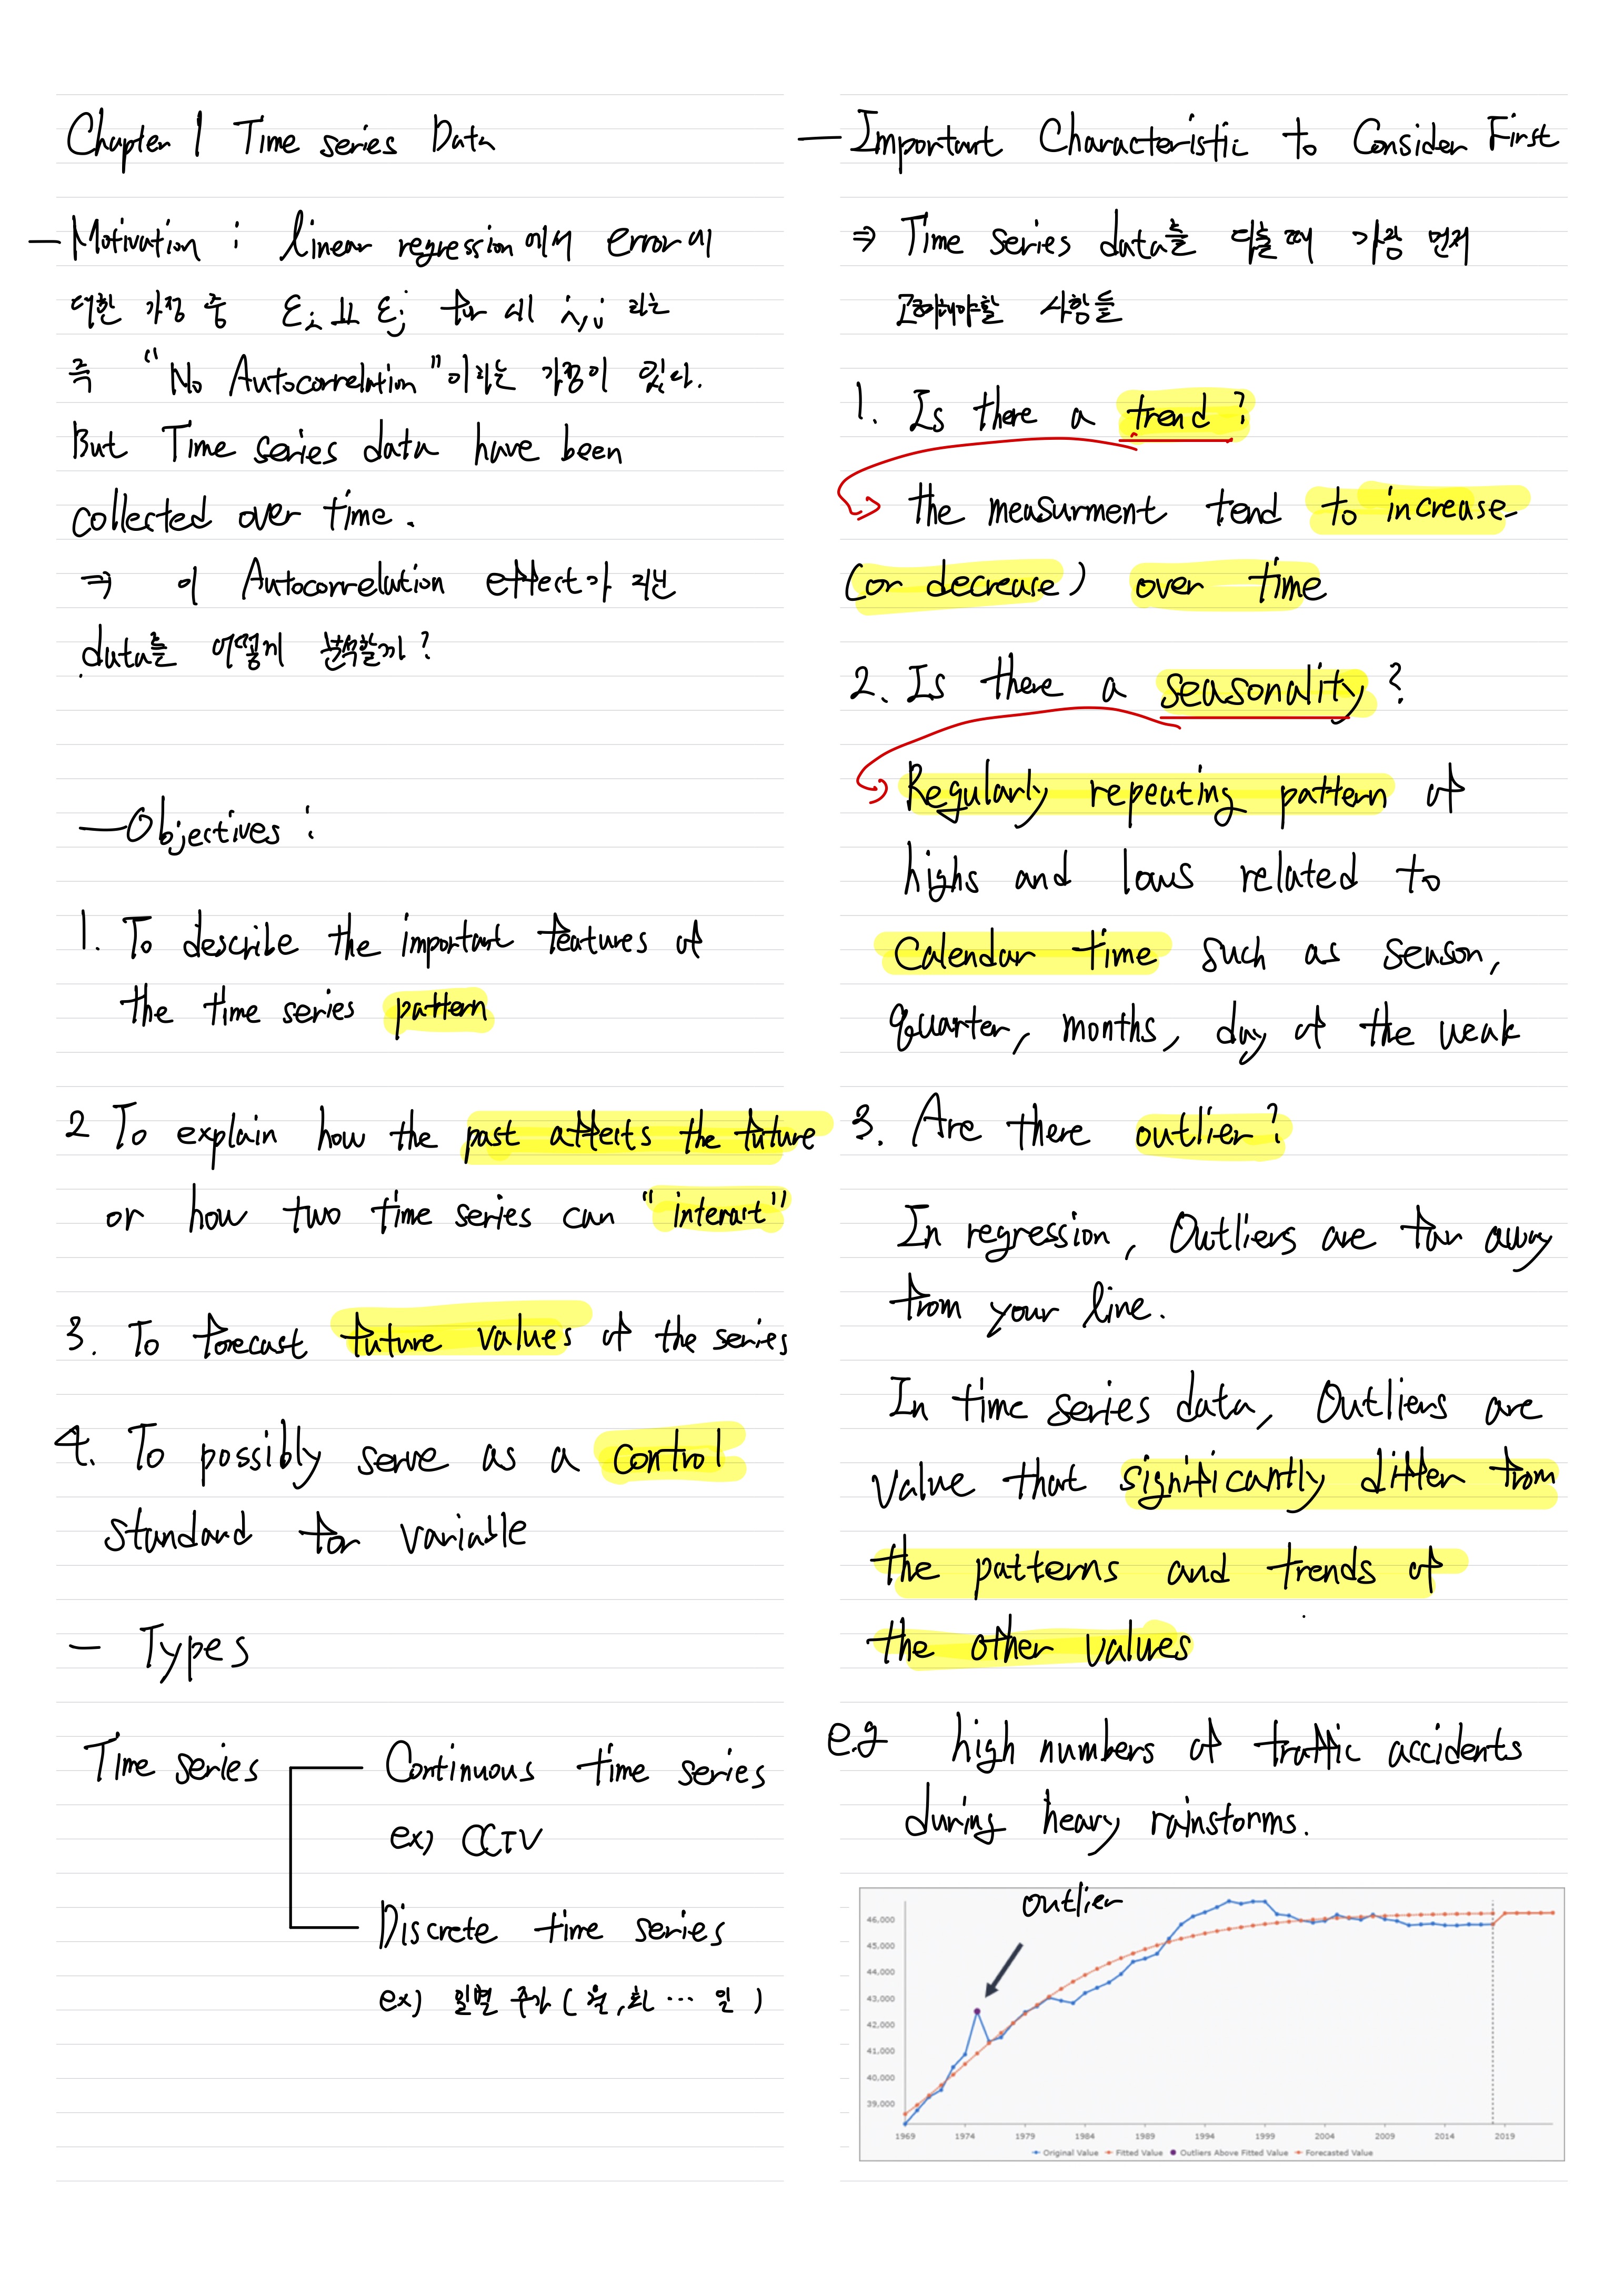 Chapter 1 Time series Data
— Motivation : linear regression에서 error에
대한 가정 중 εi ⫫ εj for all i,j 라는
즉 "No Autocorrelation"이라는 가정이 있다.
But Time series data have been
collected over time.
⇒ 이 Autocorrelation effect가 지닌
data를 어떻게 분석할까?
— Objectives :
1. To describe the important features of
the time series pattern
2 To explain how the past affects the future
or how two time series can "interact"
3. To forecast future values of the series
4. To possibly serve as a control
standard for variable
— Types
Time series
Continuous time series
ex) CCTV
Discrete time series
ex) 일별 주가 ( 월, 화 ... 일 )
— Important Characteristic to Consider First
⇒ Time series data를 다룰 때 가장 먼저
고려해야할 사항들
1. Is there a trend?
the measurment tend to increase
(or decrease) over time
2. Is there a seasonality?
Regularly repeating pattern of
highs and lows related to
Calendar time such as season,
quarter, months, day of the weak
3. Are there outlier?
In regression, Outliers are far away
from your line.
In time series data, Outliers are
value that significantly differ from
the patterns and trends of
the other values
e.g high numbers of traffic accidents
during heavy rainstorms.
outlier
46,000
45,000
44,000
43,000
42,000
41,000
40,000
39,000
1969 1974 1979 1984 1989 1994 1999 2004 2009 2014 2019
Original Value Fitted Value Outliers Above Fitted Value Forecasted Value